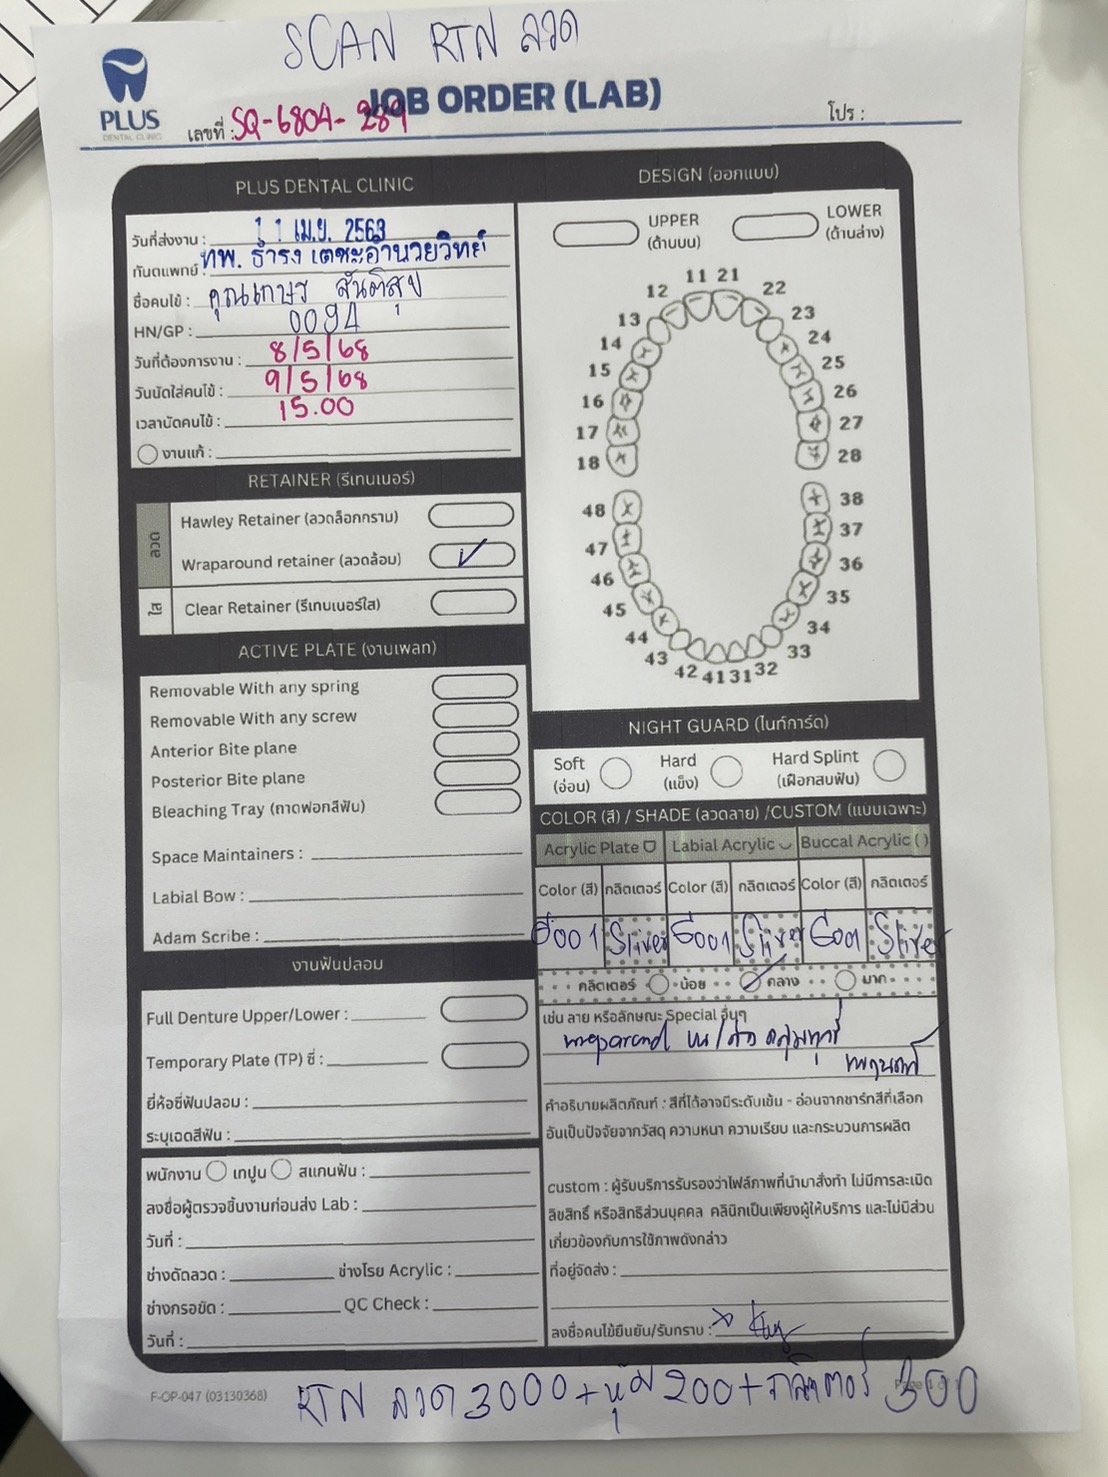 SCAN RTN ลวด
PLUS
DENTAL CLINIC
JOB ORDER (LAB)
เลขที่ : SQ-6804-289
โปร :
PLUS DENTAL CLINIC
วันที่ส่งงาน : 11 เม.ย. 2568
ทันตแพทย์ : ทพ. ธำรง เตชะอำนวยวิทย์
ชื่อคนไข้ : คุณเกษร สันติสุข
HN/GP : 0094
วันที่ต้องการงาน : 8/5/68
วันนัดใส่คนไข้ : 9/5/68
เวลานัดคนไข้ : 15.00
งานแก้ :
RETAINER (รีเทนเนอร์)
ลวด
Hawley Retainer (ลวดล็อกกราม)
Wraparound retainer (ลวดล้อม) ✓
ใส
Clear Retainer (รีเทนเนอร์ใส)
ACTIVE PLATE (งานเพลท)
Removable With any spring
Removable With any screw
Anterior Bite plane
Posterior Bite plane
Bleaching Tray (ถาดฟอกสีฟัน)
Space Maintainers :
Labial Bow :
Adam Scribe :
งานฟันปลอม
Full Denture Upper/Lower :
Temporary Plate (TP) ซี่ :
ยี่ห้อซี่ฟันปลอม :
ระบุเฉดสีฟัน :
พนักงาน เทปูน สแกนฟัน :
ลงชื่อผู้ตรวจชิ้นงานก่อนส่ง Lab :
วันที่ :
ช่างดัดลวด : ช่างโรย Acrylic :
ช่างกรอขัด : QC Check :
วันที่ :
DESIGN (ออกแบบ)
UPPER
(ด้านบน)
LOWER
(ด้านล่าง)
11 21
12 22
13 23
14 24
15 25
16 26
17 27
18 28
48 38
47 37
46 36
45 35
44 34
43 33
42 41 31 32
NIGHT GUARD (ไนท์การ์ด)
Soft
(อ่อน)
Hard
(แข็ง)
Hard Splint
(เฝือกสบฟัน)
COLOR (สี) / SHADE (ลวดลาย) /CUSTOM (แบบเฉพาะ)
Acrylic Plate Labial Acrylic Buccal Acrylic ( )
Color (สี) กลิตเตอร์ Color (สี) กลิตเตอร์ Color (สี) กลิตเตอร์
001 Sliver 001 Sliver 001 Sliver
กลิตเตอร์ น้อย ✓ กลาง มาก
เช่น ลาย หรือลักษณะ Special อื่นๆ
คำอธิบายผลิตภัณฑ์ : สีที่ได้อาจมีระดับเข้ม - อ่อนจากชาร์ทสีที่เลือก
อันเป็นปัจจัยจากวัสดุ ความหนา ความเรียบ และกระบวนการผลิต
custom : ผู้รับบริการรับรองว่าไฟล์ภาพที่นำมาสั่งทำ ไม่มีการละเมิด
ลิขสิทธิ์ หรือสิทธิส่วนบุคคล คลินิกเป็นเพียงผู้ให้บริการ และไม่มีส่วน
เกี่ยวข้องกับการใช้ภาพดังกล่าว
ที่อยู่จัดส่ง :
ลงชื่อคนไข้ยืนยัน/รับทราบ :
F-OP-047 (03130368)
RTN ลวด 3000 + หุ้ม 200 + กลิตเตอร์ 300